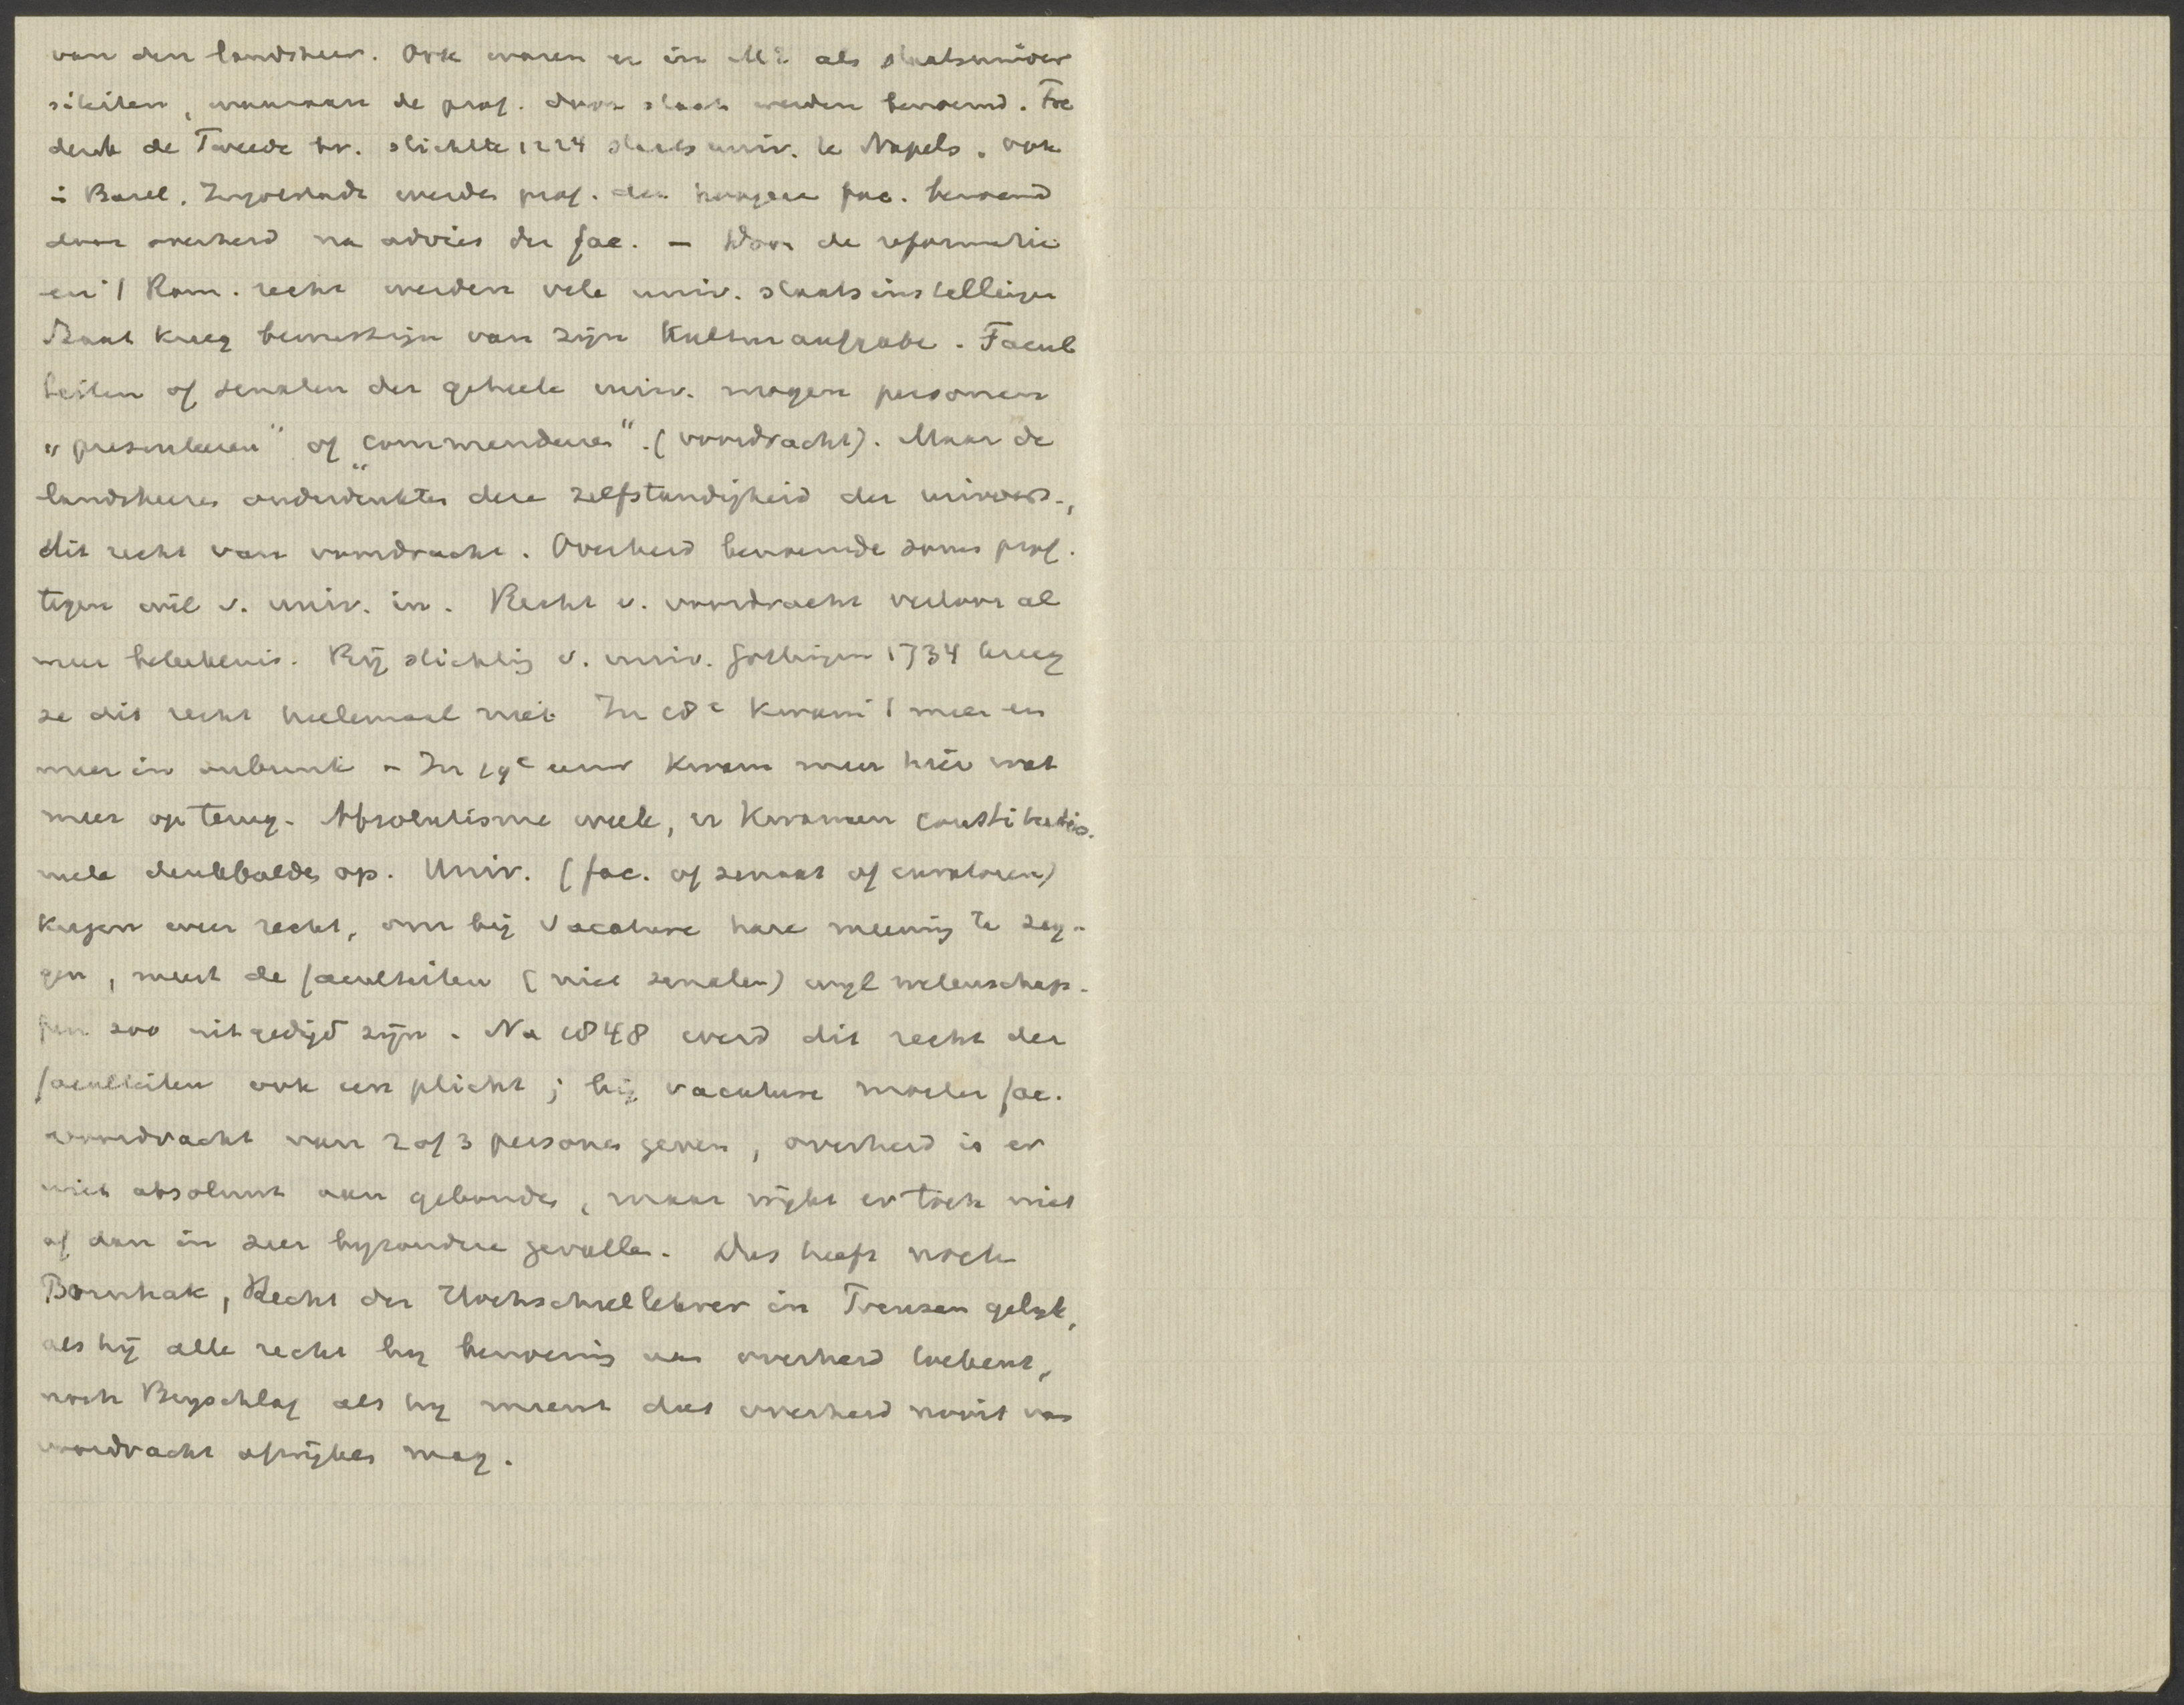 van den landsheer. Ook waren er in ME als staatsuniver
siteiten, waaraan de prof. door staat werden benoemd. Fre
derik de Tweede bv. stichtte 1224 staatsuniv. te Napels. ook
i Basel, Ingolstadt werden prof. der hoogere fac. benoemd
door overheid na advies der fac. – Door de reformatie
en 't Rom. recht werden vele univ. staatsinstellingen
Staat kreeg bewustzijn van zijn Kulturaufgabe. Facul
teiten of senaten der geheele univ. mogen personen
„presenteeren" of „commendeeren". (voordracht). Maar de
landsheeren onderdrukten deze zelfstandigheid der univers.,
dit recht van voordracht. Overheid benoemde soms prof.
tegen wil v. univ. in. Recht v. voordracht verloor al
meer beteekenis. Bij stichting v. univ. Gottingen 1734 kreeg
ze dit recht heelemaal niet. In 18e kwam 't meer en
meer in onbruik – In 19e eeuw kwam men hier wat
meer op terug. Absolutisme week, er kwamen constitutio.
neele denkbeelden op. Univ. (fac. of senaat of curatoren)
kregen weer recht, om bij vacature hare meening te zeg-
gen, meest de faculteiten (niet senaten) wijl wetenschap-
pen zoo uitgedijd zijn. Na 1848 werd dit recht der
faculteiten ook een plicht; bij vacature moeten fac.
voordracht van 2 of 3 personen geven, overheid is er
niet absoluut aan gebonden, maar wijkt er toch niet
af dan in zeer byzondere gevallen. Dus heeft noch
Bornhak, Recht der Hochschullehrer in Preusen gelyk,
als hij alle recht by benoeming aan overheid toekent,
noch Beyschlag als hy meent dat overheid nooit van
voordracht afwijken mag.